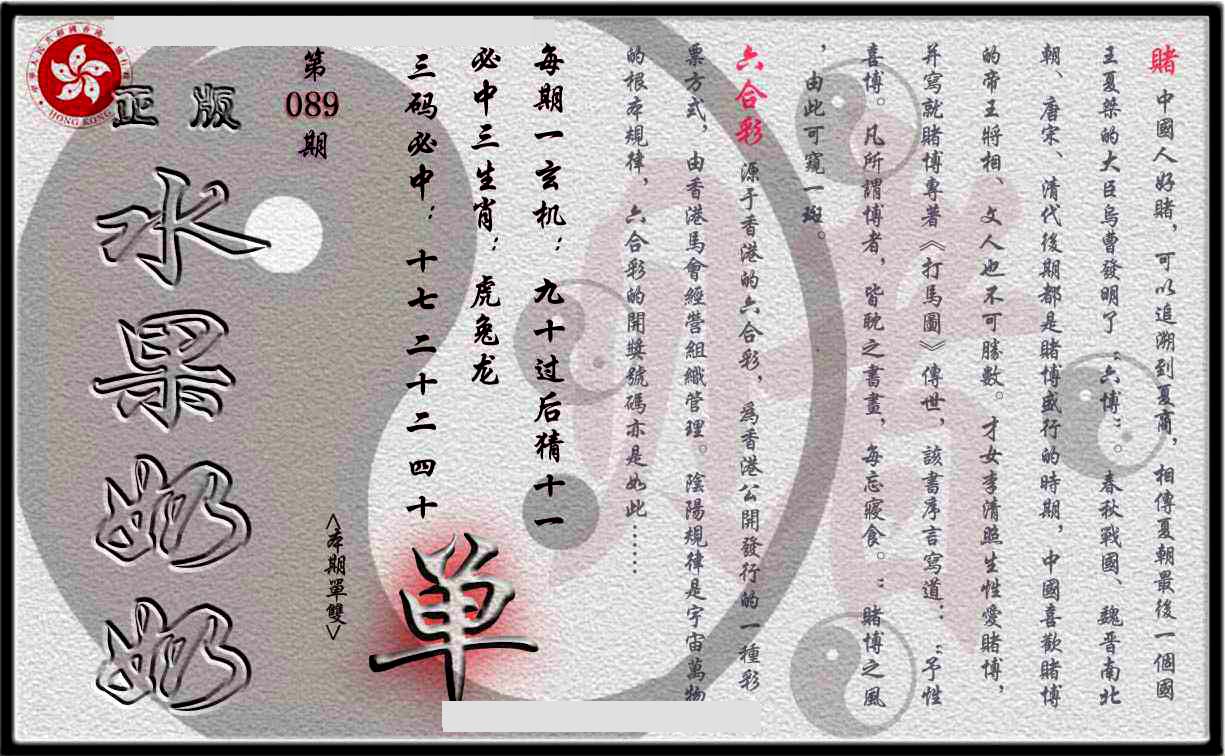 賭 中國人好賭，可以追溯到夏商，相傳夏朝最後一個國
王夏桀的大臣烏曹發明了“六博”。春秋戰國、魏晋南北
朝、唐宋、清代後期都是賭博盛行的時期，中國喜歡賭博
的帝王將相、文人也不可勝數。才女李清照生性愛賭博，
并寫就賭博專著《打馬圖》傳世，該書序言寫道：“予性
喜博。凡所謂博者，皆耽之書畫，每忘寢食。”賭博之風
，由此可窺一斑。
六合彩 源于香港的六合彩，為香港公開發行的一種彩
票方式，由香港馬會經營組織管理。陰陽規律是宇宙萬物
的根本規律，六合彩的開獎號碼亦是如此……
每期一玄机：九十过后猜十一
必中三生肖：虎兔龙
三码必中：十七二十二四十
第
089
期
<本期單雙>
单
正版
水果奶奶
HONG KONG